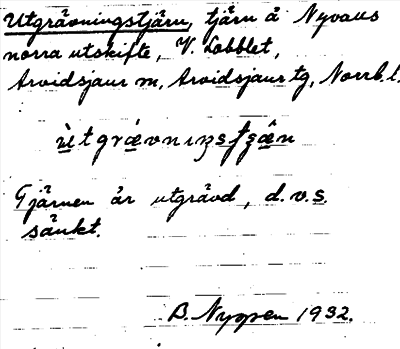 Utgrävningstjärn, tjärn å Nyvaus
norra utskifte, V. Lobblet,
Arvidsjaur m, Arvidsjaur tg, Norrb. l.
Tjärnen är utgrävd, d.v.s.
sänkt.
B. Nyssen 1932.